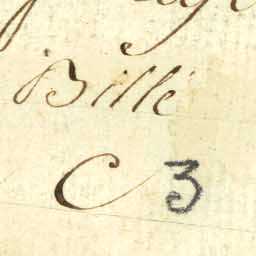 Billé
C 3